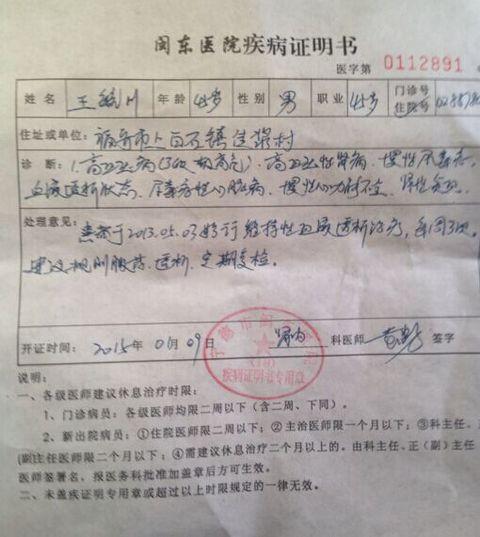 闽东医院疾病证明书
医字第 0112891
姓名 王 川 年龄 45岁 性别 男 职业 45岁 门诊号 住院号
住址或单位：福安市上白石镇 村
诊断：1.高血压病(3级 极高危)、高血压性肾病、慢性尿毒症、
血液透析状态、尿毒症性心脏病、慢性心功能不全、肾性贫血。
处理意见：患者于2013.05.03始行维持性血液透析治疗，每周3次，
建议规则服药、透析、定期复检。
开证时间：2015年01月09日 肾内 科医师 签字
宁德市闽东医院
(18)
疾病证明书专用章
说明：
一、各级医师建议休息治疗时限：
1、门诊病员：各级医师均限二周以下（含二周、下同）。
2、新出院病员：①住院医师限二周以下；②主治医师限一个月以下；③科主任、
(副)主任医师限二个月以下；④需建议休息治疗二个月以上的。由科主任、正（副）主任
医师签署名，报医务科批准加盖章后方可生效。
二、未盖疾证明专用章或超过以上时限规定的一律无效。